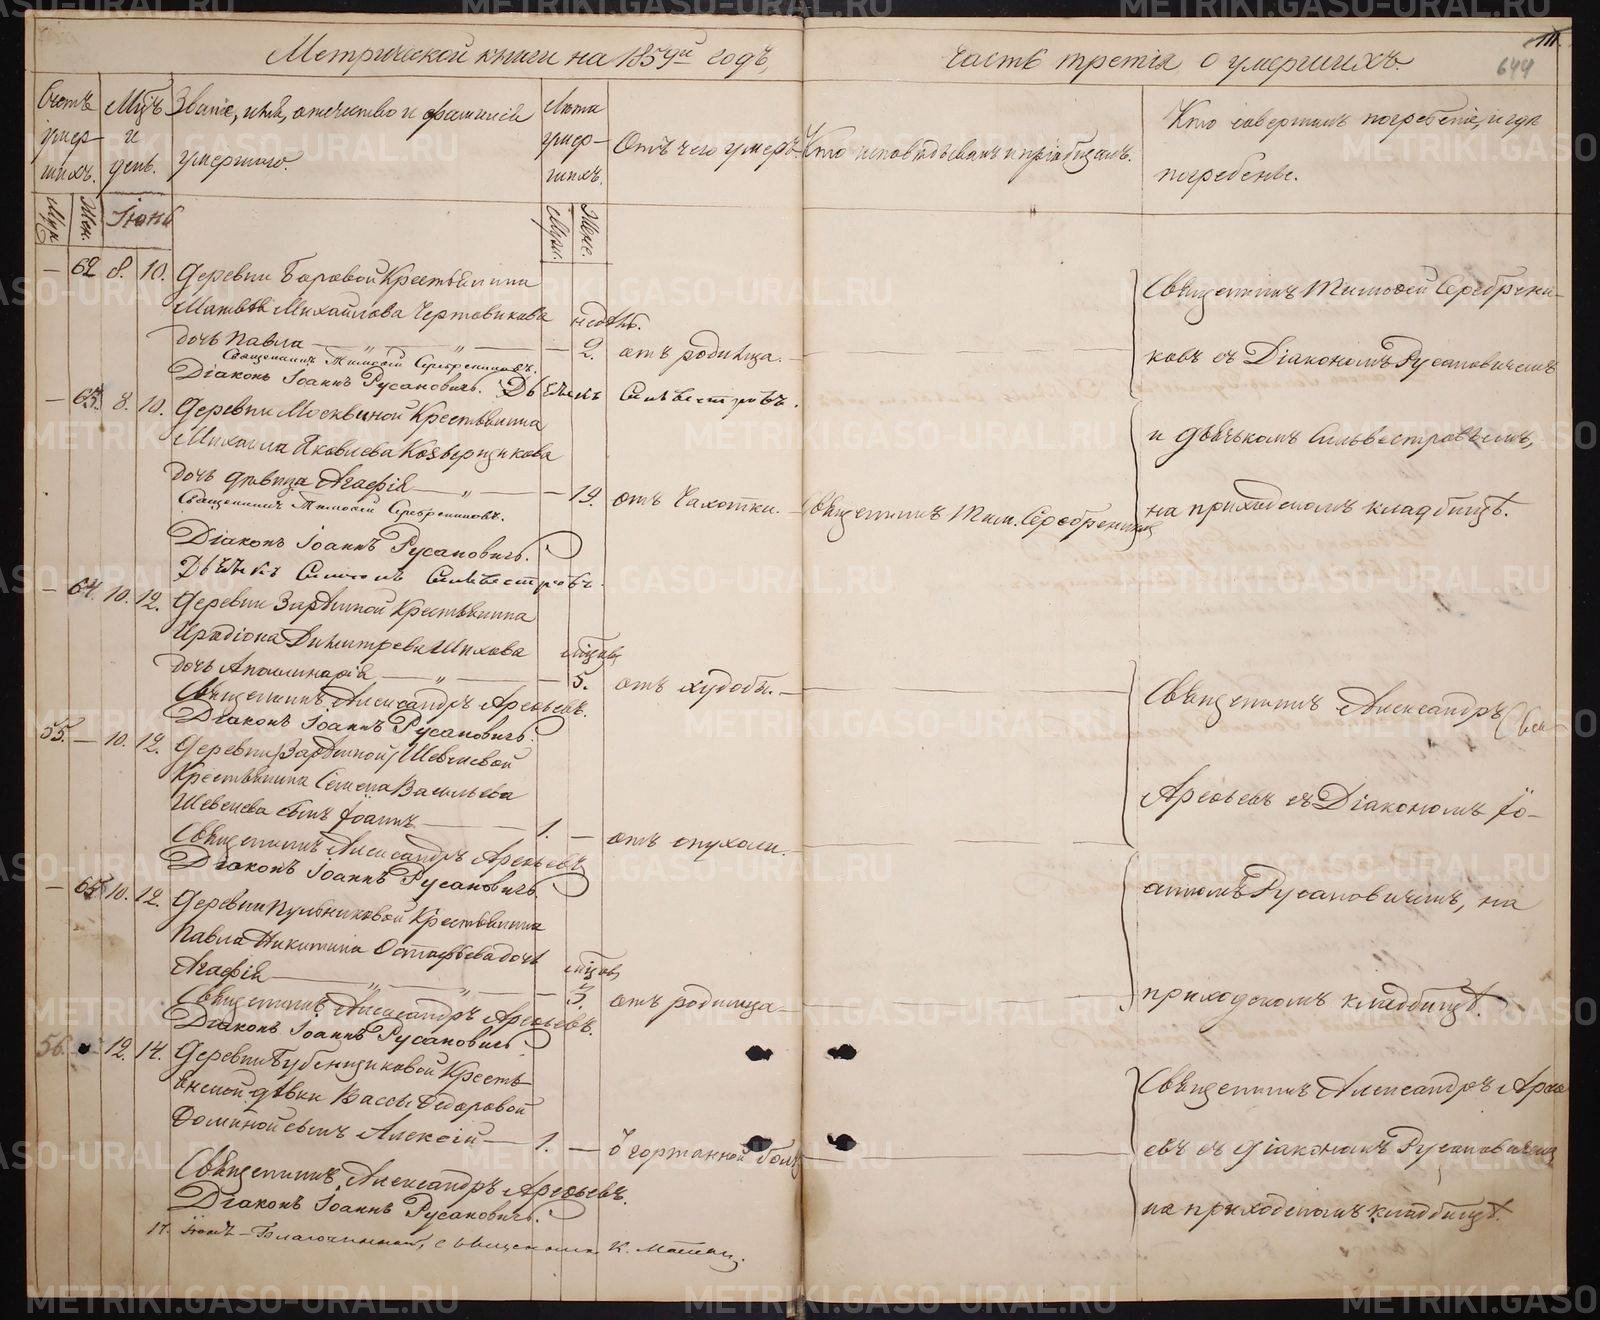 Метрической книги на 1859й годъ,
часть третія о умершихъ.
644
Счетъ умер-шихъ.
Мцъ и день.
Званіе, имя, отчество и фамилія умершаго.
Лета умер-шихъ.
Отъ чего умеръ.
Кто исповѣдывалъ и пріобщалъ.
Кто совершалъ погребеніе, и гдѣ погребены.
Муж. Жен. Іюнь Муж. Жен.
— 62. 8. 10. Деревни Боровой Крестьянина
Матвѣя Михайлова Чертовикова недѣль.
дочь Павла — 2. отъ родимца.
Священникъ Тимофей Серебренниковъ.
Діаконъ Іоаннъ Русановичь. Дьячекъ Сильвестровъ.
Священникъ Тимофей Серебрени-
ковъ съ Діакономъ Русановичемъ
и дьячкомъ Сильвестровымъ,
на приходскомъ кладбищѣ.
— 63. 8. 10. Деревни Москвиной Крестьянина
Михаила Яковлева
дочь дѣвица Агафія — 19. отъ Чахотки. Священникъ Тим. Серебренниковъ
Священникъ Тимофей Серебренниковъ.
Діаконъ Іоаннъ Русановичь.
Дьячекъ Симеонъ Сильвестровъ.
— 64. 10. 12. Деревни Зыряшной Крестьянина
Иродіона Димитрева Шихова мѣцовъ
дочь Аполлинарія — 5. отъ худобы.
Священникъ Александръ Арефьевъ.
Діаконъ Іоаннъ Русановичь.
Священникъ Александръ
Арефьевъ съ Діакономъ Іо-
анномъ Русановичемъ, на
приходскомъ кладбищѣ.
55. — 10. 12. Деревни Шевелевой
Крестьянина Семена Васильева
Шевелева сынъ Іоаннъ — 1. — отъ опухоли.
Священникъ Александръ Арефьевъ.
Діаконъ Іоаннъ Русановичь.
— 65. 10. 12. Деревни Пульниковой Крестьянина
Павла Никитина Остафьева дочь
Агафія — мѣцовъ 3. отъ родимца
Священникъ Александръ Арефьевъ.
Діаконъ Іоаннъ Русановичь.
56. 12. 14. Деревни Бубенщиковой Кресть-
янской дѣвки Вассы Федоровой
Фоминой сынъ Алексій — 1. — гортанной
Священникъ Александръ Арефьевъ.
Діаконъ Іоаннъ Русановичь.
Священникъ Александръ Арефь-
евъ съ діакономъ Русановичемъ
на приходскомъ кладбищѣ.
17. Іюнь – Благочинный, священникъ К.
METRIKI.GASO-URAL.RU